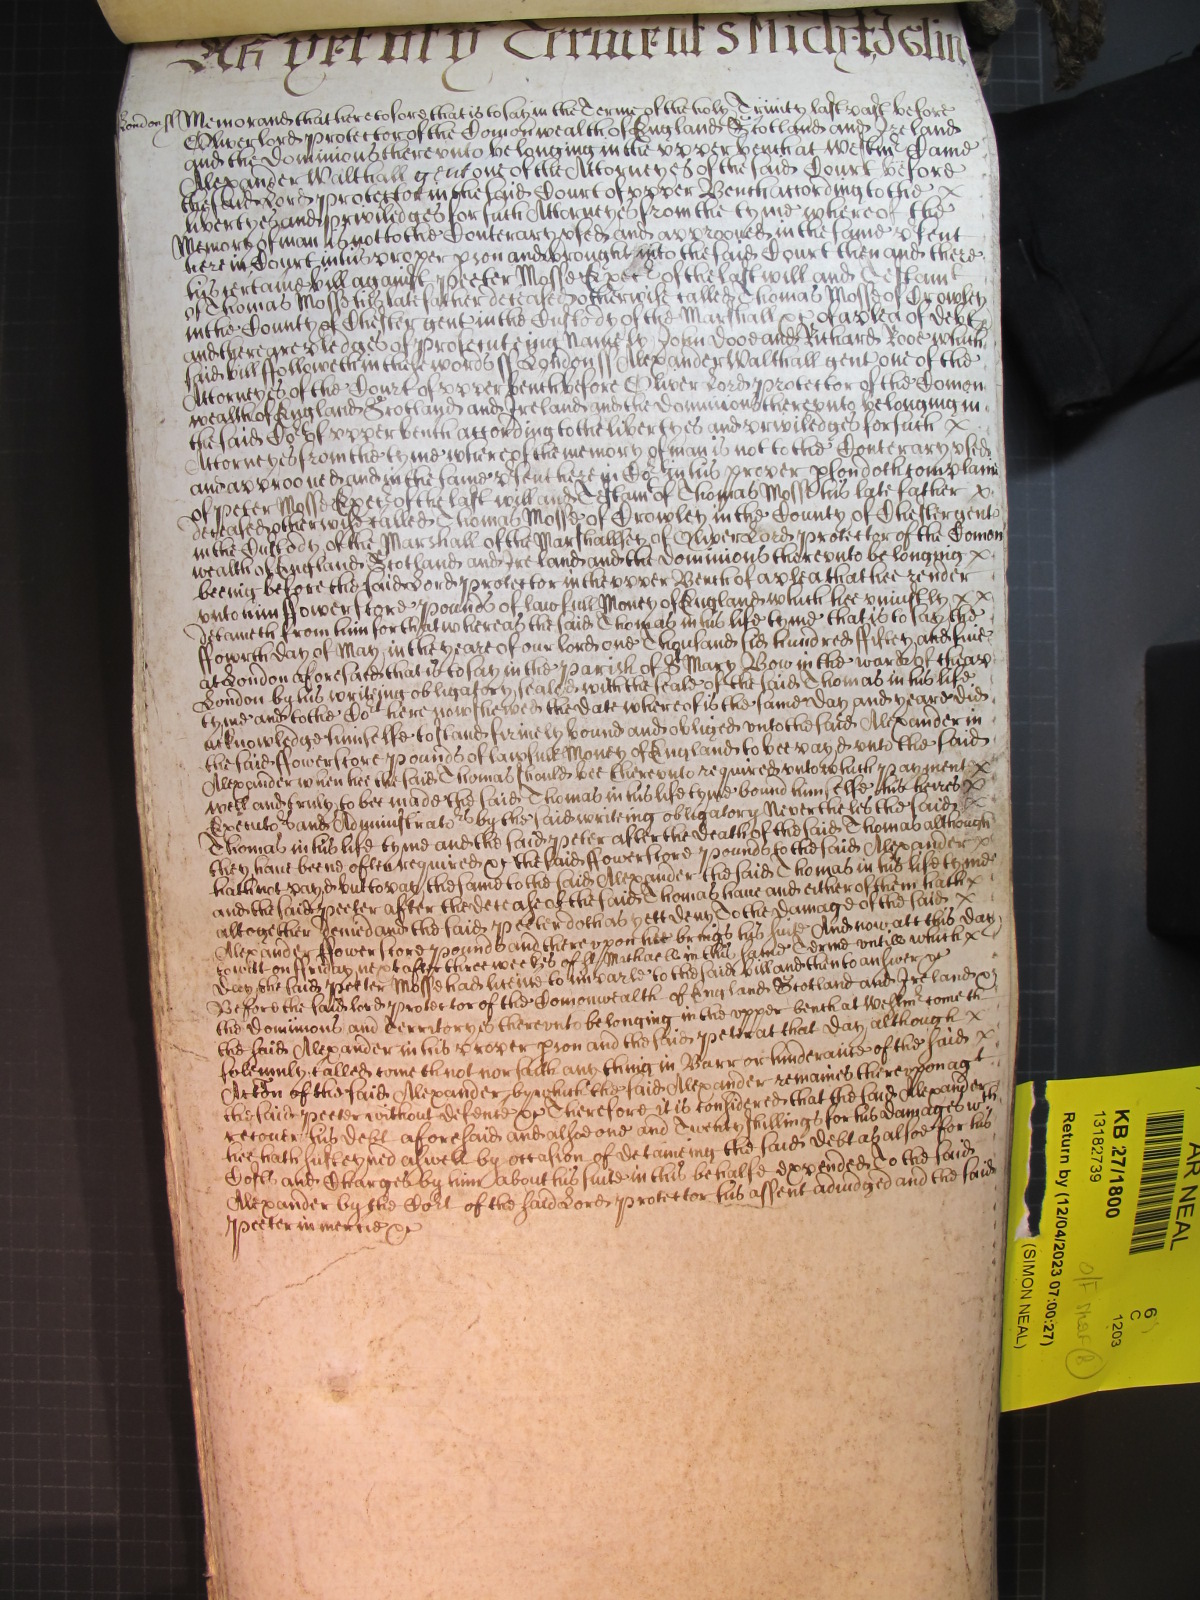 As yet of ye Terme of St Mich
London ss Memorand that heretofore that is to say in the Terme of the holy Trinity last past before
Oliver lord Protector of the Comonwealth of England Scotland and Ireland
and the Dominions therevnto belonging in the vpper bench at Westmr Came
Alexander Walthall gent one of the Attorneyes of the said Court before
the said Lord Protector in the said Court of vpper Bench according to the x
libertyes and priviledges for such Attorneyes from the tyme whereof the
Memory of man is not to the Conterary vsed and approoued in the same psent
here in Court in his proper pson and brought into the said Court then and there
his certaine bill against Peeter Mosse Execr of the last will and Testamt
of Thomas Mosse his late father deceased otherwise called Thomas Mosse of Crowley
in the County of Chester gent in the Custody of the Marshall &c of a plea of Debt
and there are pledges of prosecuteing Namely John Dooe and Richard Rooe which
said bill followeth in these words ss London ss Alexander Walthall gent one of the
Attorneyes of the Court of vpper bench before Oliver Lord Protector of the Comon
wealth of England Scotland and Ireland and the Dominions therevnto belonging in
the said Cort of vpper bench according to the libertyes and priviledges for such x
Attorneyes from the tyme whereof the memory of man is not to the Conterary vsed
and approoued and in the same psent here in Cort in his proper pson doth complaine
of Peter Mosse Execr of the last will and Testamt of Thomas Mosse his late father x
deceased otherwise called Thomas Mosse of Crowley in the County of Chester gent
in the Custody of the Marshall of the Marshallsey of Oliver Lord Protector of the Comon
wealth of England Scotland and Ireland and the Dominions therevnto belonging x
beeing before the said Lord Protector in the vpper Bench of a plea that hee render
vnto him ffowerscore Pounds of lawfull Money of England which hee vniustly x x
detaineth from him for that whereas the said Thomas in his life tyme that is to say the
ffowrth day of May in the yeare of our lord one Thousand six hundred fifty and fiue
at London aforesaid that is to say in the Parish of St Mary Bow in the ward of Cheap
London by his writeing obligatory sealed with the seale of the said Thomas in his life
tyme and to the Cort here now shewed the date whereof is the same day and yeare did
acknowledge himselfe to stand firmely bound and obliged vnto the said Alexander in
the said ffowerscore Pounds of lawfull Money of England to bee payd vnto the said
Alexander when hee the said Thomas should bee therevnto required vnto which Payment x
well and truly to bee made the said Thomas in his life tyme bound himselfe his heires
Executors and Administrators by the said writeing obligatory Neverthelesse the said
Thomas in his life tyme and the said Peter after the death of the said Thomas although
they haue beene often required &c the said ffowerscore Pounds to the said Alexander x
hath not payd but to pay the same to the said Alexander the said Thomas in his life tyme
and the said Peeter after the decease of the said Thomas haue and either of them hath x
altogether denied and the said Peeter doth as yett deny To the damage of the said x
Alexander ffowerscore Pounds and therevpon hee brings his suite And now att this day
to witt on ffriday next after three weekes of St Michaell in this same Terme vntill which x
day the said Peeter Mosse had licence to imparle to the said bill and then to answer &c
Before the said lord Protector of the Comonwealth of England Scotland and Ireland &
the Dominions and Territoryes therevnto belonging in the vpper bench at Westmr cometh
the said Alexander in his proper pson and the said Peter at that day although x
solemnly called cometh not nor saith any thing in Barr or hinderance of the said x
Action of the said Alexander by which the said Alexander remaines therevpon agt
the said Peeter without defence &c Therefore it is considered that the said Alexander
recouer his debt aforesaid and alsoe one and Twenty shillings for his damages wch
hee hath susteyned aswell by occasion of detaineing the said debt as alsoe for his
Costs and Charges by him about his suite in this behalfe expended To the said
Alexander by the Cort of the said Lord Protector his assent adiudged and the said
Peeter in mercie &c
AR NEAL
KB 27/1800
13182739
Return by (12/04/2023 07:00:27)
(SIMON NEAL)
1203
6
C